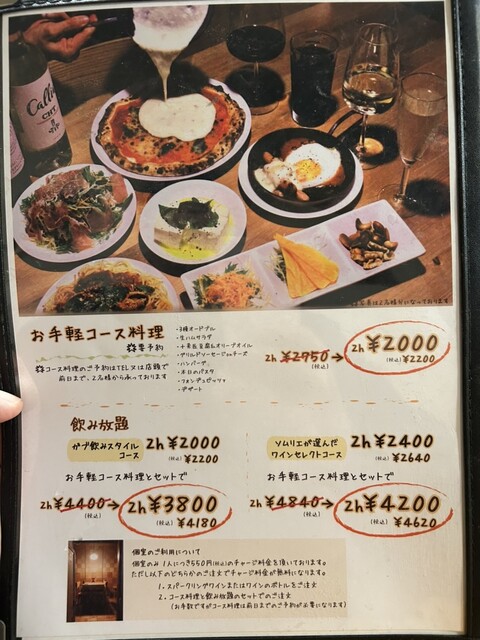 Calle
CHT
※写真は2名様分になっております
お手軽コース料理
※要予約
※コース料理のご予約はTEL又は店頭で
前日まで、2名様から承っております
・3種オードブル
・生ハムサラダ
・十勝長豆腐&オリーブオイル
・グリルドソーセージonチーズ
・ハンバーグ
・本日のパスタ
・フォンデュピッツァ
・デザート
2h ¥2950 → 2h ¥2000
(税込) (税込) ¥2200
飲み放題
かぶ飲みスタイル
コース
2h ¥2000
(税込) ¥2200
お手軽コース料理とセットで
2h ¥4400 → 2h ¥3800
(税込) (税込) ¥4180
ソムリエが選んだ
ワインセレクトコース
2h ¥2400
(税込) ¥2640
お手軽コース料理とセットで
2h ¥4840 → 2h ¥4200
(税込) (税込) ¥4620
個室のご利用について
個室のみ 1人につき550円(税込)のチャージ料金を頂いております。
ただし以下のどちらかのご注文でチャージ料金が無料になります。
1. スパークリングワインまたはワインのボトルをご注文
2. コース料理と飲み放題のセットでのご注文
(お手数ですがコース料理は前日までのご予約が必要になります)